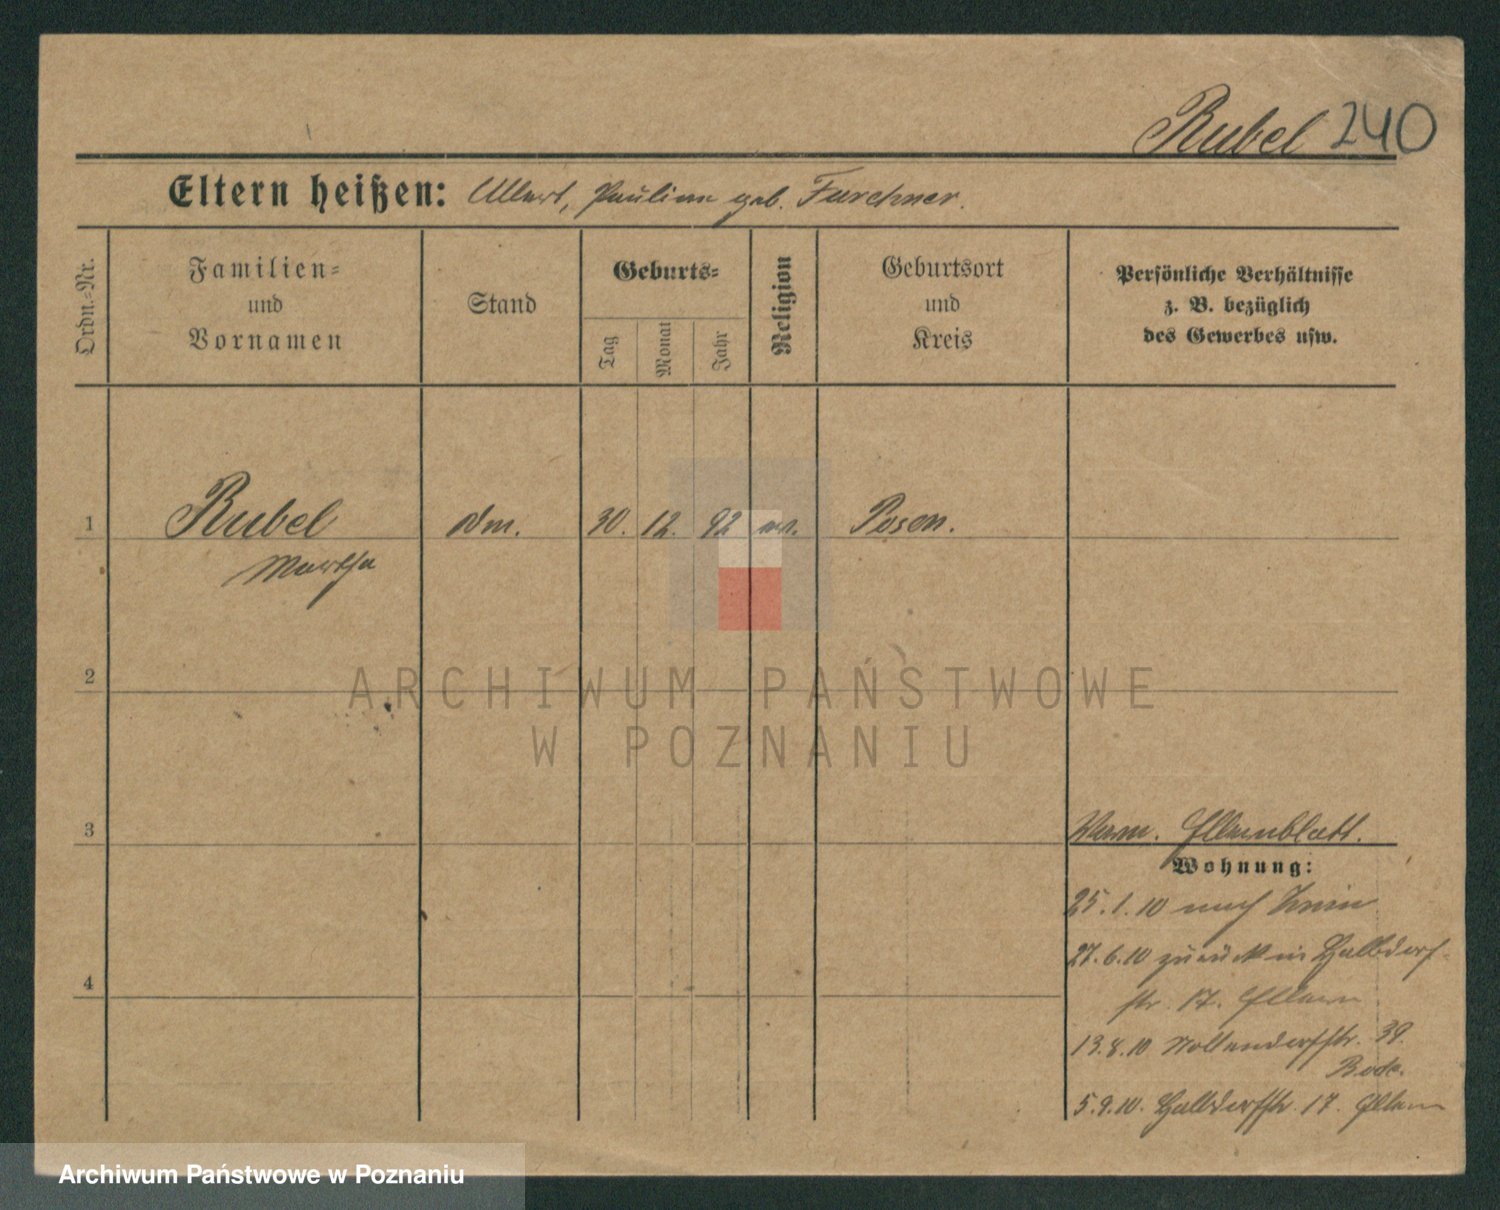 Rubel 240
Eltern heißen: Albert, Pauline geb. Furchner.
Ordn.-Nr.
Familien-
und
Vornamen
Stand
Geburts-
Tag
Monat
Jahr
Religion
Geburtsort
und
Kreis
Persönliche Verhältnisse
z. B. bezüglich
des Gewerbes usw.
1 Rubel 30. 12. 92 ev. Posen.
Martha
2
3
Elternblatt.
Wohnung:
25.1.10 nach Znin
27.6.10 zurück in Halbdorf-
str. 17. Eltern
13.8.10 Nollendorfstr. 39.
Bode.
4
5.9.10. Halbdorfstr. 17. Eltern
ARCHIWUM PAŃSTWOWE
W POZNANIU
Archiwum Państwowe w Poznaniu